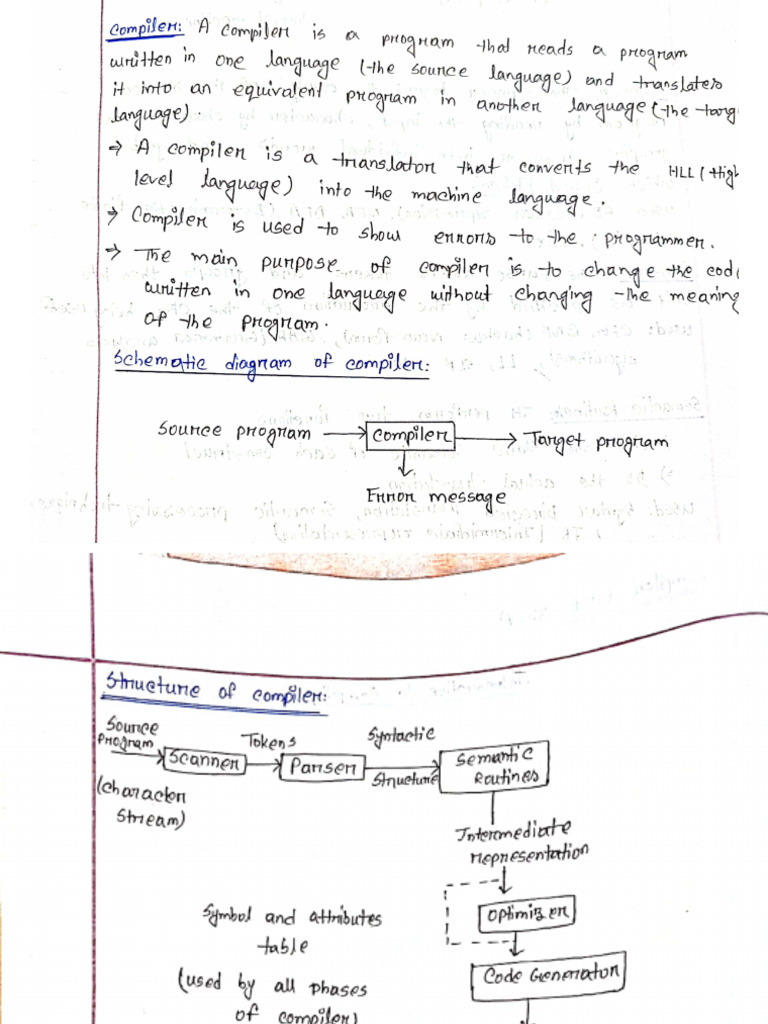 Compiler: A compiler is a program that reads a program
written in one language (the source language) and translates
it into an equivalent program in another language (the targ
language).
→ A compiler is a translator that converts the HLL (High
level language) into the machine language.
→ Compiler is used to show errors to the programmer.
→ The main purpose of compiler is to change the code
written in one language without changing the meaning
of the program.
Schematic diagram of compiler:
Source program → Compiler → Target program
Error message
Structure of compiler:
Source Program
(Character Stream)
Scanner
Tokens
Parser
Syntactic Structure
Semantic Routines
Intermediate
representation
Optimizer
Symbol and attributes
table
(used by all phases
of compiler)
Code Generator